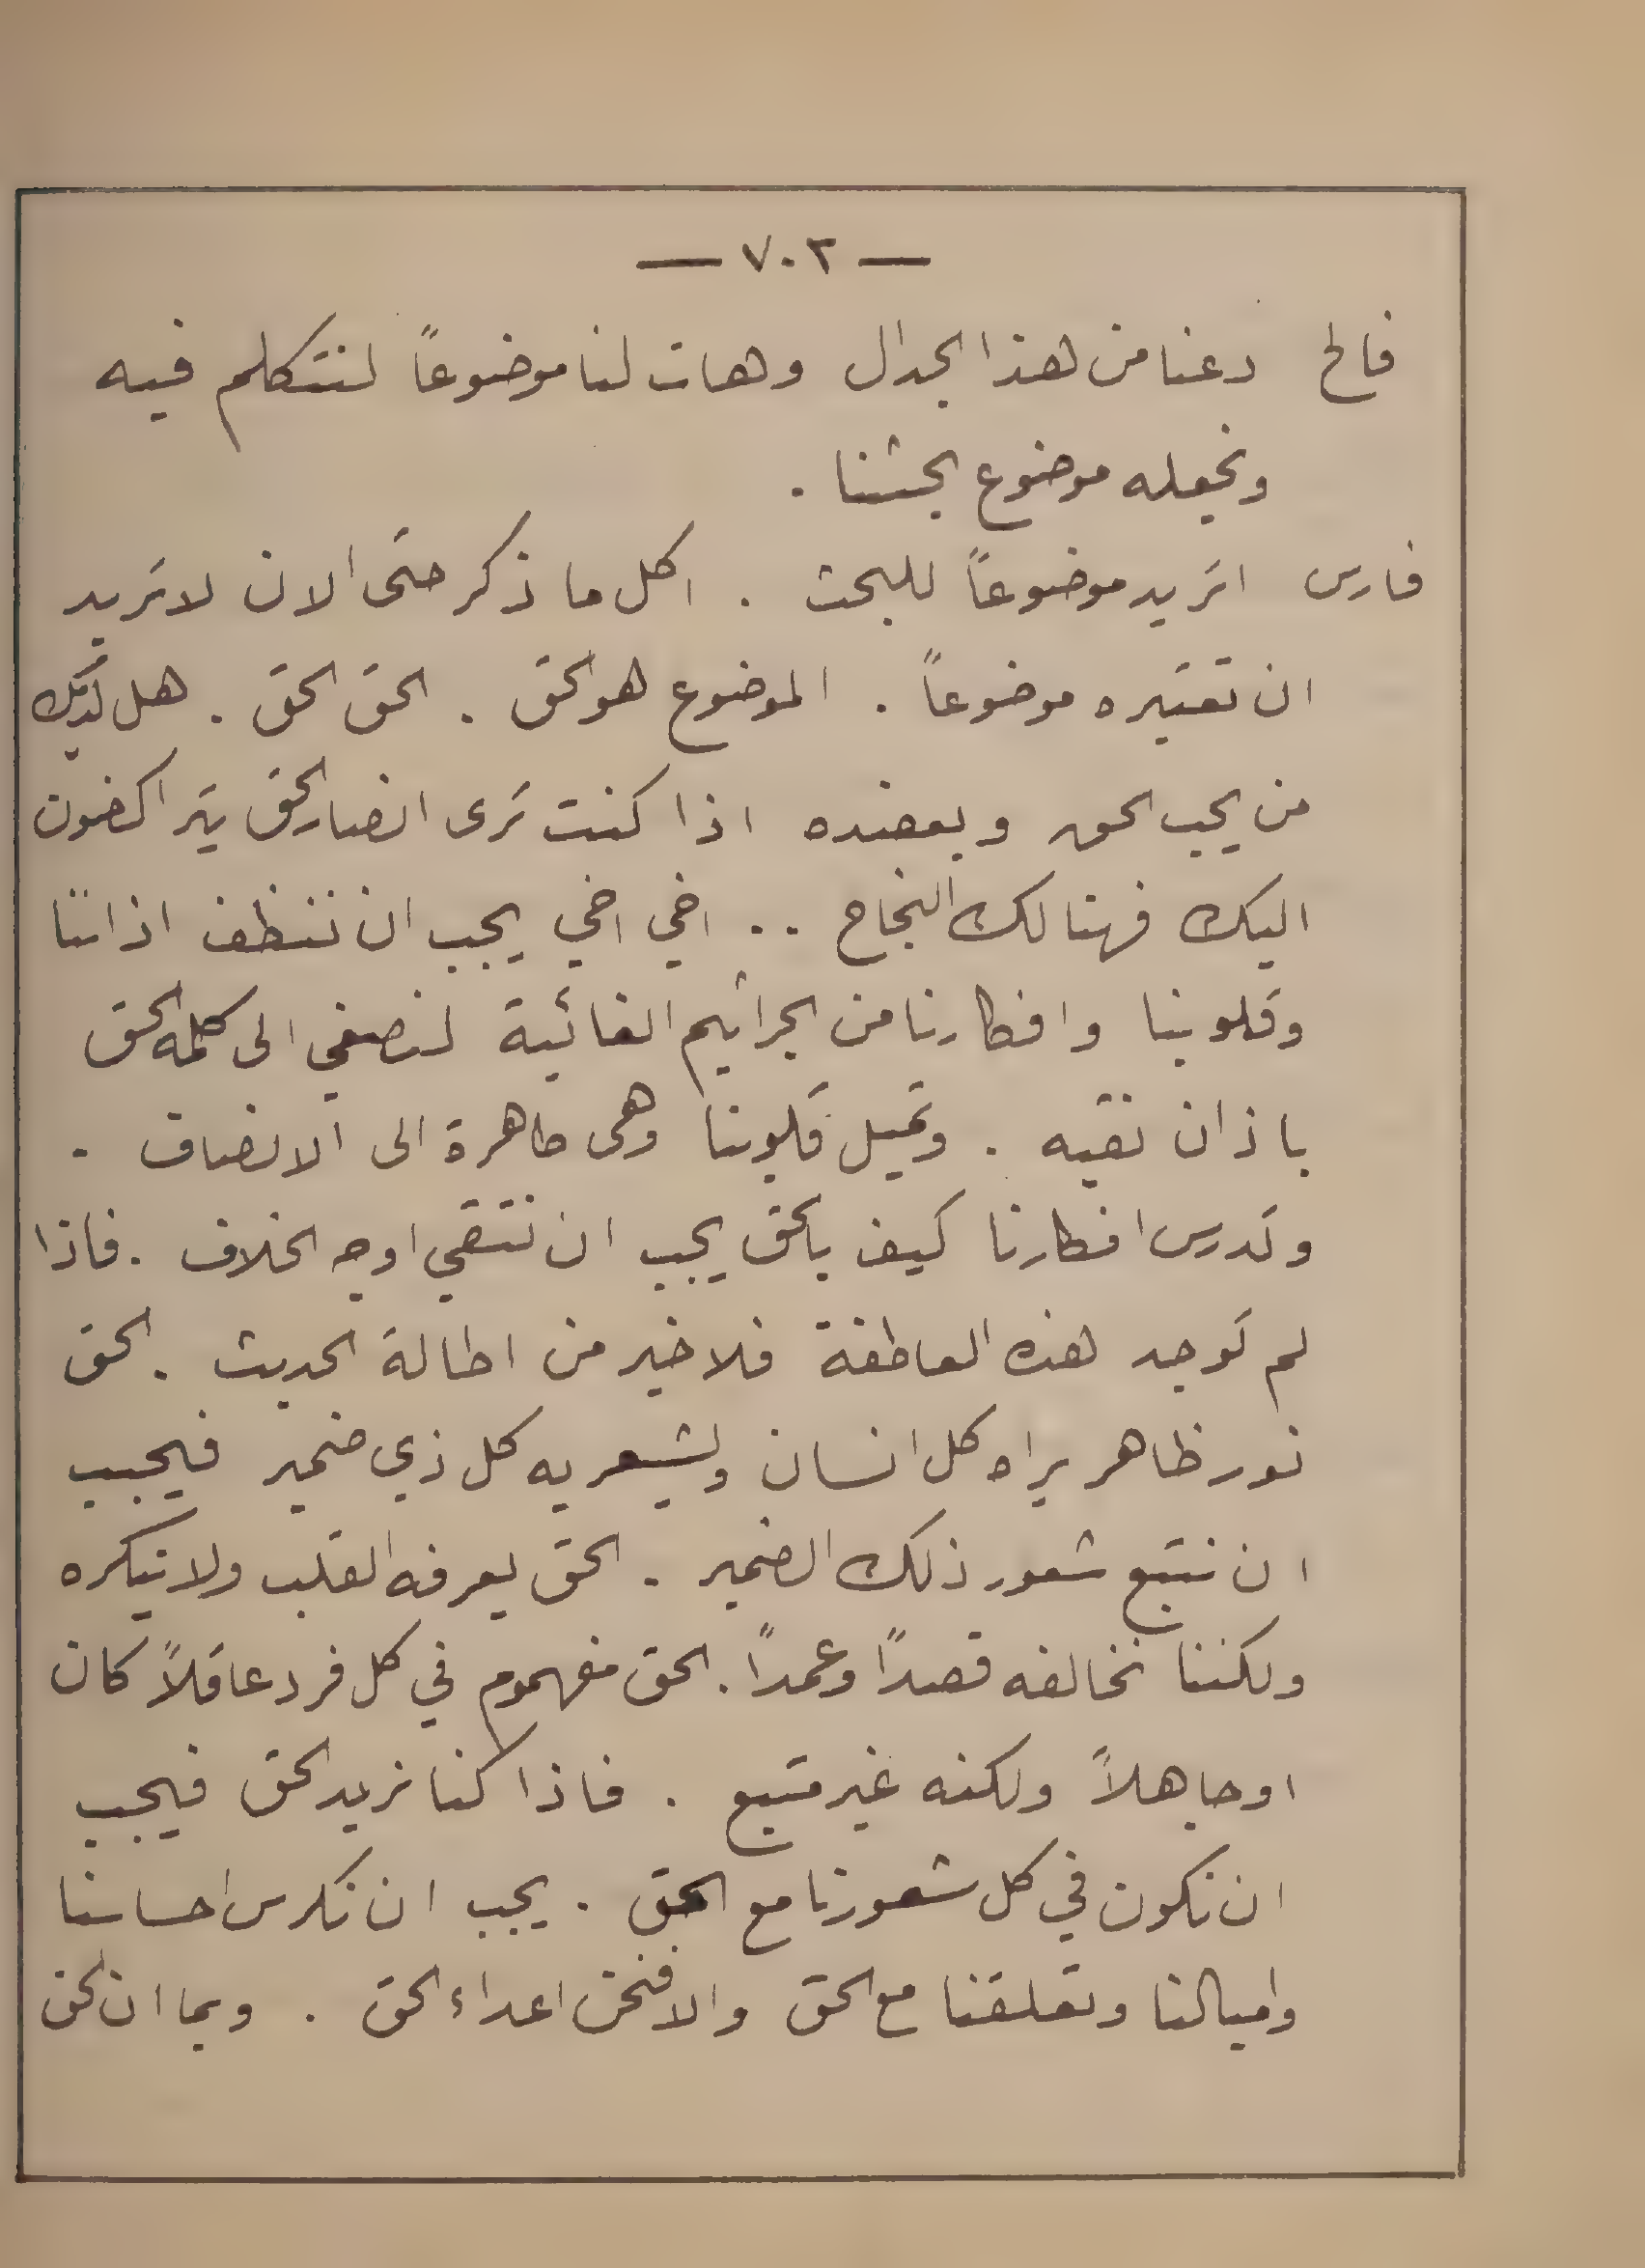 — ٧٠٢ —
فالح دعنا من هذا الجدال وهات لنا موضوعاً لنتكلم فيه
ونجعله موضوع بحثنا .
فارس اتريد موضوعاً للبحث . اكل ما ذكر حتى الان لا تريد
ان تعتبره موضوعاً . الموضوع هو الحق . الحق الحق . هل لديك
من يحب الحق ويعضده اذا كنت ترى انصار الحق يتراكضون
اليك فهنالك النجاح .. اخي اخي يجب ان ننظف اذاننا
وقلوبنا وافكارنا من الجراثيم الغائبة لنصغي الى كلمه الحق
باذان نقيه . وتميل قلوبنا وهي طاهرة الى الانصاف .
وتدرس افكارنا كيف بالحق يجب ان ننتقي اوجه الخلاف . فاذا
لم توجد هذه العاطفة فلا خير من اطالة الحديث . الحق
نور ظاهر يراه كل انسان ويشعر به كل ذي ضمير فيجب
ان نتبع شعور ذلك الضمير . الحق يعرفه القلب ولا ينكره
ولكننا نخالفه قصداً وعمداً . الحق مفهموم في كل فرد عاقلاً كان
او جاهلاً ولكنه غير متبع . فاذا كنا نريد الحق فيجب
ان نكون في كل شعورنا مع الحق . يجب ان نكرس احساسنا
واميالنا وتعلقنا مع الحق والا فنحن اعداء الحق . وبما ان الحق